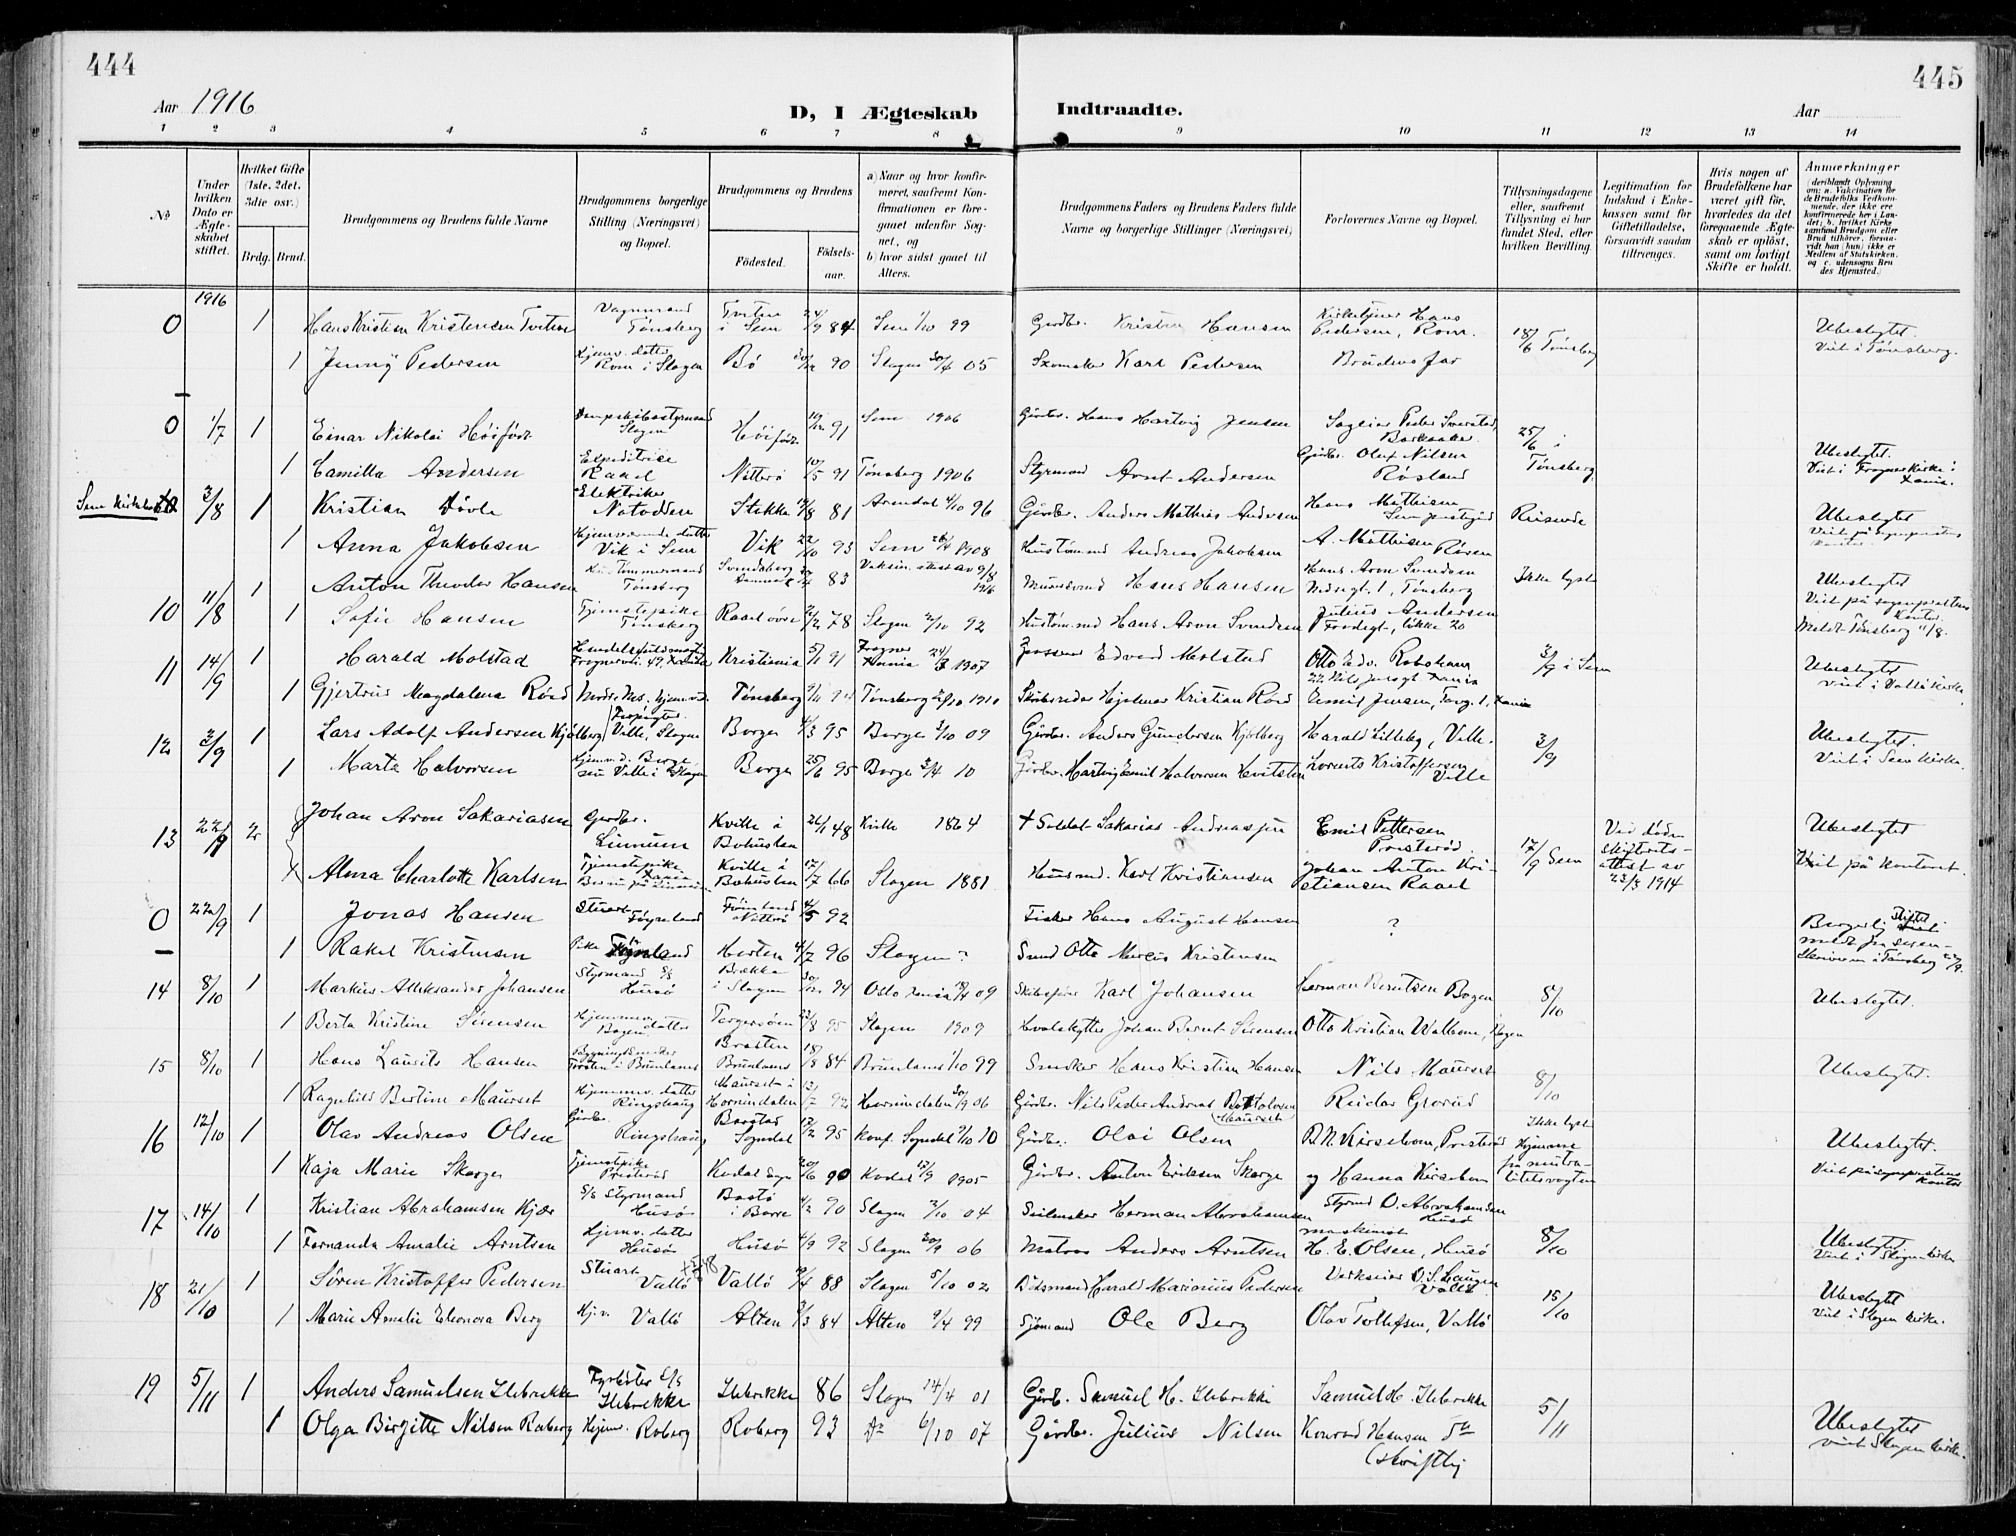 444
445
Aar 1916
D, I Ægteskab Indtraadte.
Aar
1 2 3 4 5 6 7 8 9 10 11 12 13 14
№
Under hvilken Dato er Ægteskabet stiftet.
Hvilket Gifte (1ste, 2det, 3die osv.)
Brdg. Brud.
Brudgommens og Brudens fulde Navne
Brudgommens borgerlige Stilling (Næringsvei) og Bopæl.
Brudgommens og Brudens
Fødested.
Fødselsaar.
a) Naar og hvor konfirmeret, saafremt Konfirmationen er foregaaet udenfor Sognet, og
b) hvor sidst gaaet til Alters.
Brudgommens Faders og Brudens Faders fulde Navne og borgerlige Stillinger (Næringsvei)
Forlovernes Navne og Bopæl.
Tillysningsdagene eller, saafremt Tillysning ei har fundet Sted, efter hvilken Bevilling.
Legitimation for Indskud i Enkekassen samt for Giftetilladelse, forsaavidt saadan tiltrænges.
Hvis nogen af Brudefolkene har været gift før, hvorledes da det foregaaende Ægteskab er opløst, samt om lovligt Skifte er holdt.
Anmerkninger (deriblandt Oplysning om: a. Vakcination for de Brudefolks Vedkommende, der ikke ere konfirmerede her i Landet; b. hvilket Kirkesamfund Brudgom eller Brud tilhører, forsaavidt han (hun) ikke er Medlem af Statskirken, og c. udensogns Brudes Hjemsted.)
1916
0 1 Hans Kristian Kristensen Tveten Vognmand Tønsberg Tveten i Sem 24/9 84 Sem 1/10 99 Gårdbr. Kristen Hansen Kirketjener Hans Pedersen, Rom. 18/6 Tønsberg Ubeslegtet. Viet i Tønsberg.
1 Jenny Pedersen Hjemv. datter Rom i Slagen Bø 30/12 90 Slagen 30/4 05 Skomaker Karl Pedersen Brudens far
0 1/7 1 Einar Nikolai Høifødt Dampskibsstyrmand Slagen Høifødt 19/12 91 Sem 1906 Gårdbr. Hans Hartvig Jensen 25/6 i Tønsberg
1 Camilla Andersen Expeditrice Raael Nøtterø 10/5 91 Tønsberg 1906 Styrmand Arnt Andersen Gårdbr. Oluf Nilsen Røsland Ubeslegtet. Viet i Frogner kirke i Xania.
Sem Kirkebok 3/8 1 Kristian Døvle Elektriker Notodden Stokke 19/8 81 Arendal 4/10 96 Gårdbr. Anders Mathias Andersen Hans Mathisen Ubeslegtet
1 Anna Jakobsen Hjemmeværende datter Vik i Sem Vik 22/10 93 Sem 26/4 1908 Hustømmd Andreas Jakobsen A. Mathisen Røren
10 11/8 1 Anton Theodor Hansen Hustømmermand Tønsberg Svendborg Danmark 83 Vaksin. attest av 9/8 1916 Murersvend Hans Hansen Hans Aron Svendsen Nedregt. 1, Tønsberg Ikke lyst Ubeslegtet Viet på sogneprestens kontor. Meldt Tønsberg 11/8.
1 Sofie Hansen Tjenestepike Tønsberg Raael øvre 2/2 78 Slagen 2/10 92 Hustøm.md Hans Aron Svendsen Julius Andersen Frodegt, Løkke 20
11 14/9 1 Harald Molstad Handelsfuldmægtig Frognervei. 49, Xania Kristiania 5/1 91 Frogner Xania 24/3 1907 Edvard Molstad Otto Edv. Robsham 3/9 i Sem Ubeslegtet viet i Vallø kirke.
1 Gjertrud Magdalena Røed Tønsberg 9/11 94 Tønsberg 2/10 1910 Skibsreder Hjalmar Kristian Røed Emil Jensen, Torg. 1, Xania
12 3/9 1 Lars Adolf Andersen Kjølberg Forpagter. Velle, Slagen Borge 4/3 95 Borge 3/10 09 Gårdbr. Anders Gundersen Kjølberg Harald Lilleby, Velle. 3/9 Ubeslegtet. Viet i Sem kirke.
1 Marta Halvorsen Hjemv. d. Borge, nu Velle i Slagen Borge 25/6 95 Borge 3/4 10 Gårdbr. Hartvig Emil Halvorsen Hvitsten Lorents Kristoffersen Velle
13 22/9 2 Johan Aron Sakariasen Gårdbr. Linnum Kville i Bohuslen 26/1 48 Kville 1864 + Soldat Sakarias Andreassen Emil Pettersen Presterød. 17/9 Sem Ved døden skifterets-attest av 23/3 1914 Ubeslegtet
Alma Charlotte Karlsen Tjenestepike Xania Kville i Bohuslen 17/7 66 Slagen 1881 Husmd. Karl Kristiansen Johan Anton Kristiansen Raael Viet på kontoret.
0 22/9 1 Jonas Hansen Stuert Føynland Føinland Nøtterø 4/5 92 Fisker Hans August Hansen ? Borgerlig stiftet
1 Rakel Kristensen Pike Føynland Herten 4/7 96 Slagen? Smed Otto Marcus Kristensen meldt fra sorenskriveren i Tønsberg
14 8/10 1 Markus Alleksander Johansen Styrmand S/S Husø Brekka i Slagen 94 Oslo Xania 18/4 09 Skibsfører Karl Johansen Herman Berntsen Bogen 8/10 Ubeslegtet.
1 Berta Kristine Sørensen Hjemmev. datter Bogen Torgersøen 23/8 95 Slagen 1909 Hvalskytter Johan Bernt Sørensen Otto Kristian Walbom, Bogen
15 8/10 1 Hans Laurits Hansen Bygningssnedker Torsten i Brunlanes Brosten Brunlanes 18/8 84 Brunlanes 1/10 99 Snedker Hans Kristian Hansen Nils Maurset 8/10 Ubeslegtet.
1 Ragnhild Bertine Maurset Hjemmev. datter Ringshaug Maurset i Hornindalen 13/7 92 Hornindalen 30/9 06 Gårdbr. Nils Peder Andreas Bottolvsen (Maurset) Reidar Grorud
16 12/10 1 Olav Andreas Olsen Gårdbr. Ringshaug Barstad Sogndal 17/2 95 konf. Sogndal 2/10 10 Gårdbr. Olai Olsen B. N. Kirsebom, Presterød Ikke lyst Hjemme fra nøitralitetsvagten Ubeslegtet.
1 Kaja Marie Skorge Tjenestepike Presterød Kodal sogn 20/6 90 Kodal 17/9 1905 Gårdbr. Anton Eriksen Skorge og Hanna Kirsebom Viet på sogneprestens kontor
17 14/10 1 Kristian Abrahamsen Kjær S/S Styrmand Husø Bastø i Borre 4/2 90 Slagen 2/10 04 Seilmaker Herman Abrahamsen Styrmd O. Abrahamsen Husø 8/10
1 Fernanda Amalie Arntsen Hjemv. datter Husø Husø 4/9 92 Slagen 30/9 06 Matros Anders Arntsen maskinist H. E. Olsen, Husø Ubeslegtet Viet i Slagen kirke
18 21/10 1 Søren Kristoffer Pedersen Stuert Vallø Vallø 9/4 88 Slagen 5/10 02 Baadsmand Harald Marianius Pedersen Verkseier O. S. Haugen Vallø 15/10 Ubeslegtet Viet i Slagen kirke.
1 Marie Amalie Eleonora Berg Hj.v. Vallø Alten 9/3 84 Alten 9/4 99 Sjømand Ole Berg Olav Tollefsen, Vallø
19 5/11 1 Anders Samuelsen Ilebrekke Fyrbøter S/S Ilebrekke Ilebrekke 86 Slagen 14/4 01 Gårdb. Samuel H. Ilebrekke Samuel H. Ilebrekke 5/11
1 Olga Birgitte Nilsen Roberg Hjemv. Roberg Roberg 93 Do 6/10 07 Gårdbr. Julius Nilsen Konrad Hansen Do (skriftlig Ubeslegtet viet Slagen kirke.